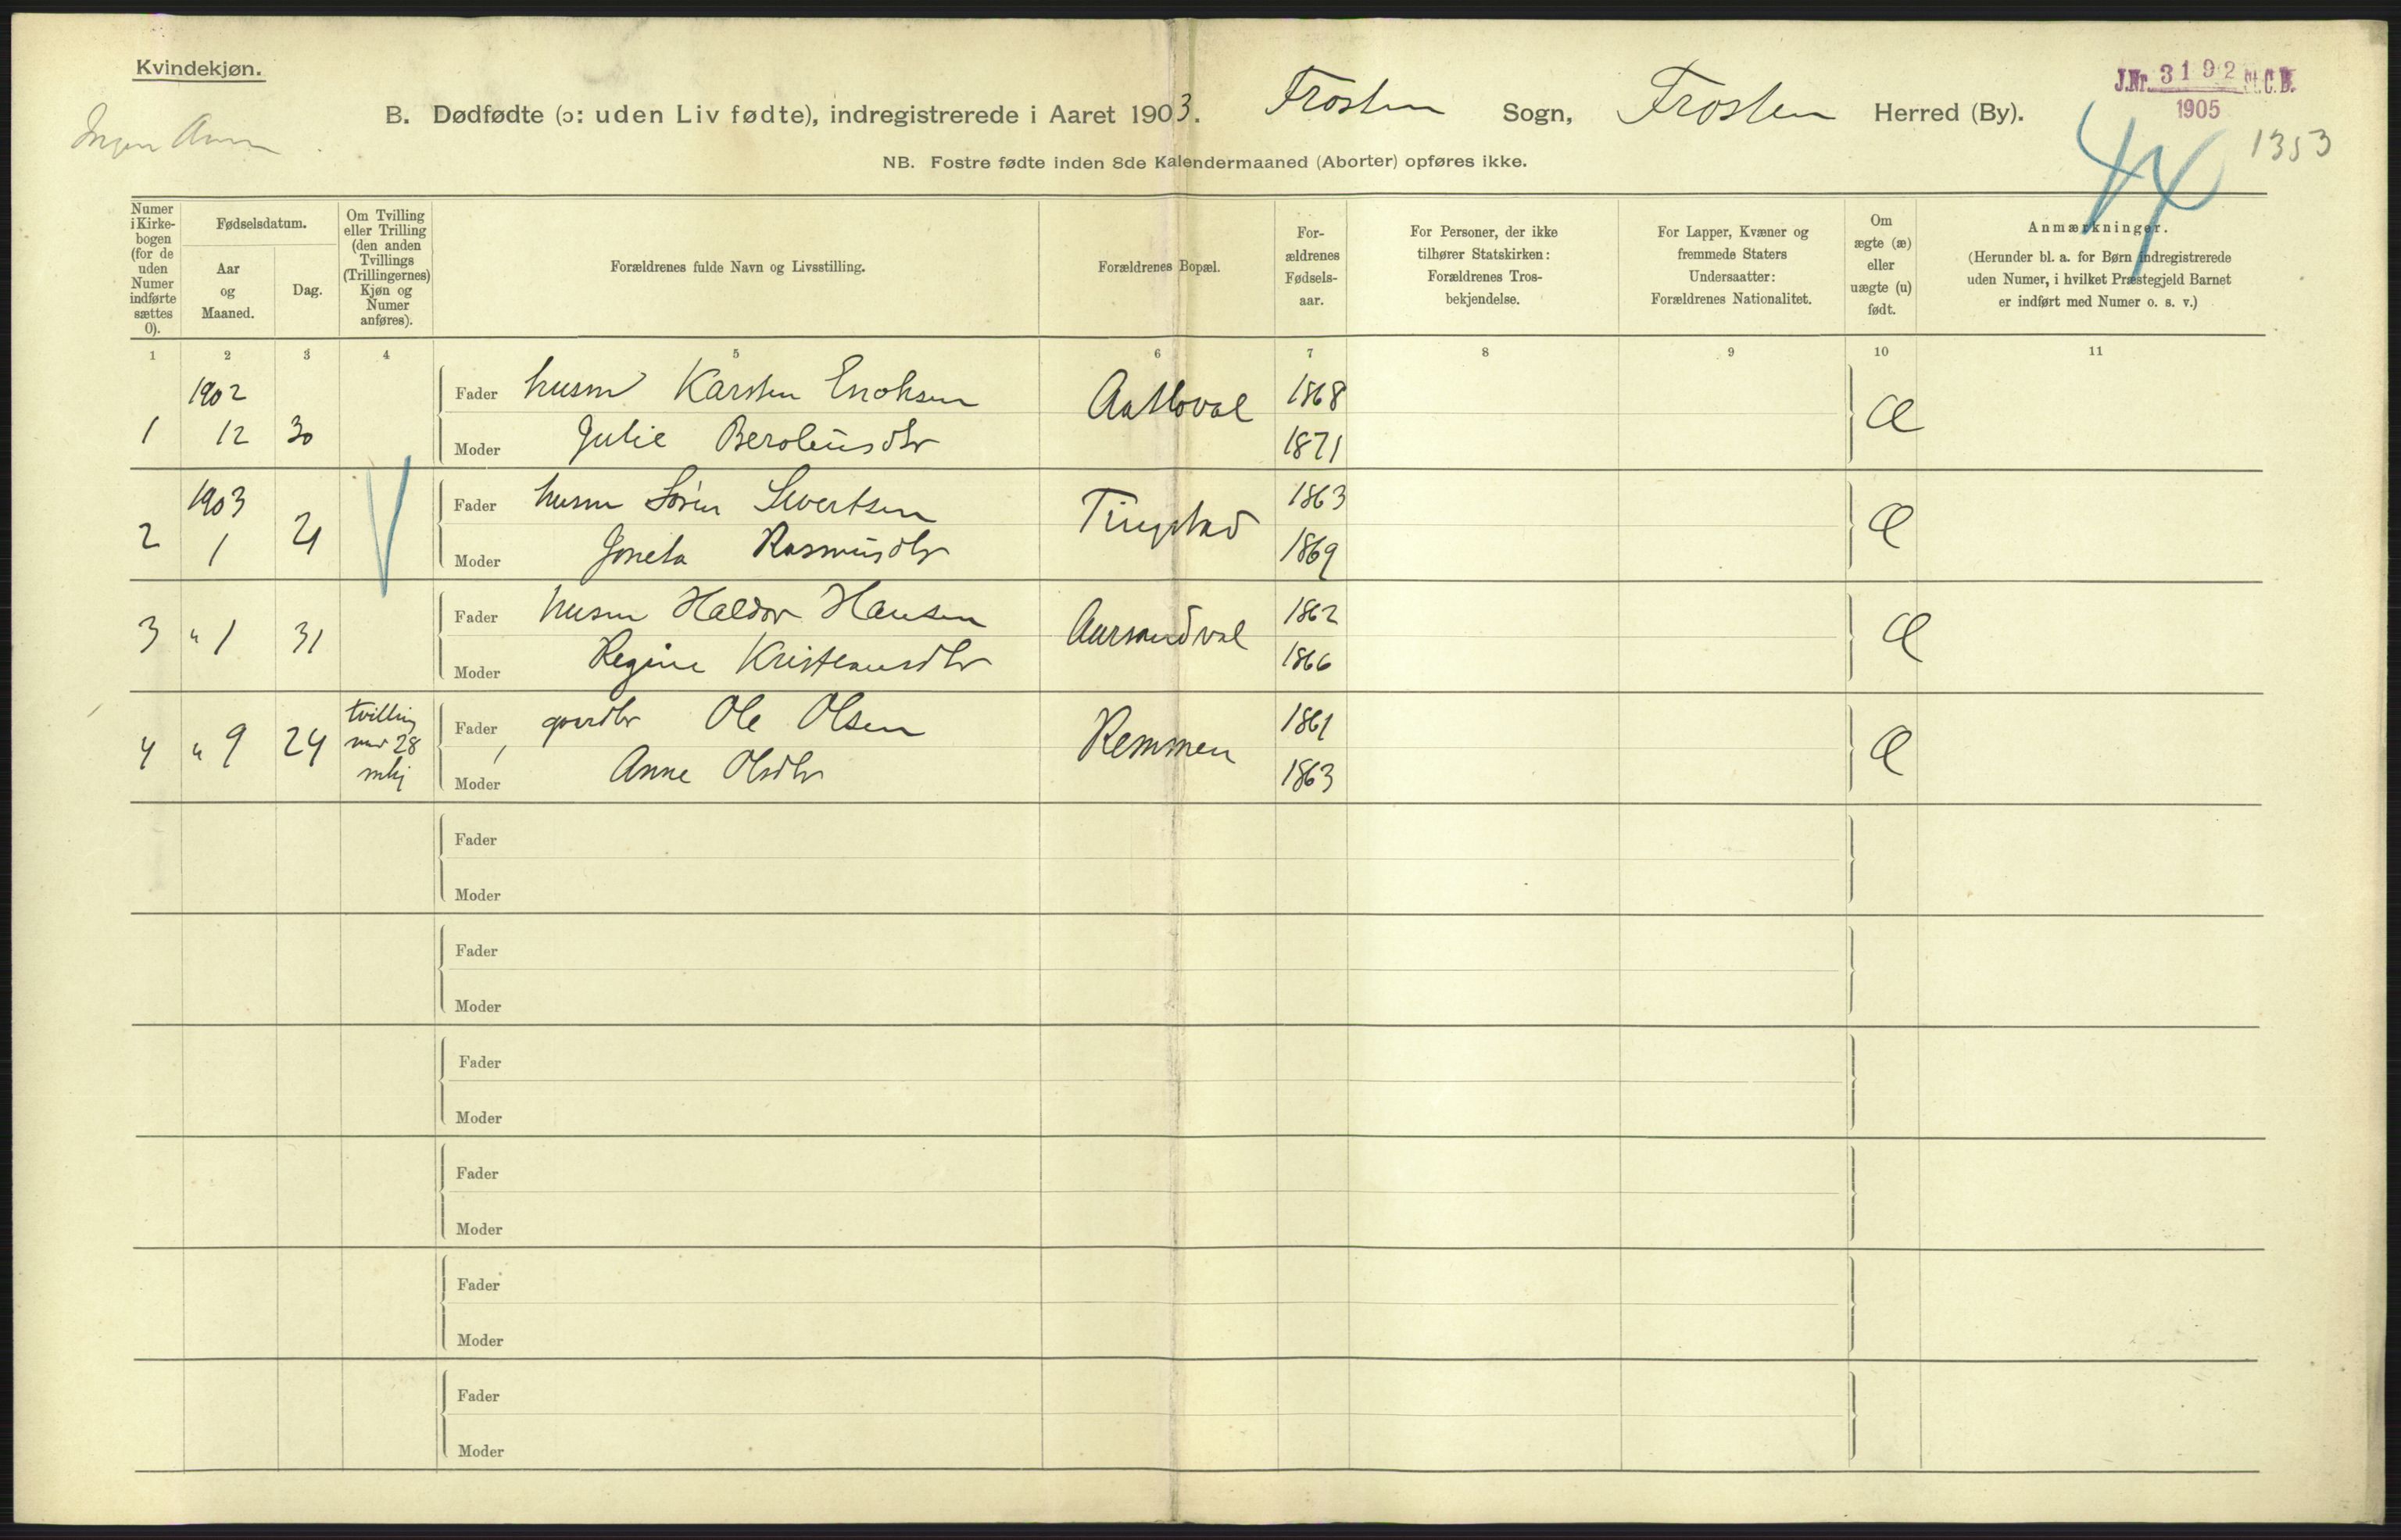 Kvindekjøn.
J.Nr. 3192 St.C.B.
1905
1353
44
B. Dødfødte (ɔ: uden Liv fødte), indregistrerede i Aaret 1903. Frosten Sogn, Frosten Herred (By).
NB. Fostre fødte inden 8de Kalendermaaned (Aborter) opføres ikke.
Numer i Kirke-bogen (for de uden Numer indførte sættes 0).
Fødselsdatum.
Aar og Maaned.
Dag.
Om Tvilling eller Trilling (den anden Tvillings (Trillingernes) Kjøn og Numer anføres).
Forældrenes fulde Navn og Livsstilling.
Forældrenes Bopæl.
For-ældrenes Fødsels-aar.
For Personer, der ikke tilhører Statskirken: Forældrenes Tros-bekjendelse.
For Lapper, Kvæner og fremmede Staters Undersaatter: Forældrenes Nationalitet.
Om ægte (æ) eller uægte (u) født.
Anmærkninger.
(Herunder bl. a. for Børn indregistrerede uden Numer, i hvilket Præstegjeld Barnet er indført med Numer o. s. v.)
1 2 3 4 5 6 7 8 9 10 11
1902
1 12 30
Fader husm Karsten Enoksen 1868 æ
Moder Julie 1871
1903
2 1 21
Fader husm Sören Sivertsen Tingstad 1863 æ
Moder Joneta Rasmusdtr 1869
3 " 1 31
Fader husm Haldor Hansen Aursandval 1862 æ
Moder Regine Kristiansdtr 1866
4 " 9 24 tvilling
Fader gaardbr Ole Olsen Remmen 1861 æ
Moder Anne Olsdtr 1863
Fader
Moder
Fader
Moder
Fader
Moder
Fader
Moder
Fader
Moder
Fader
Moder